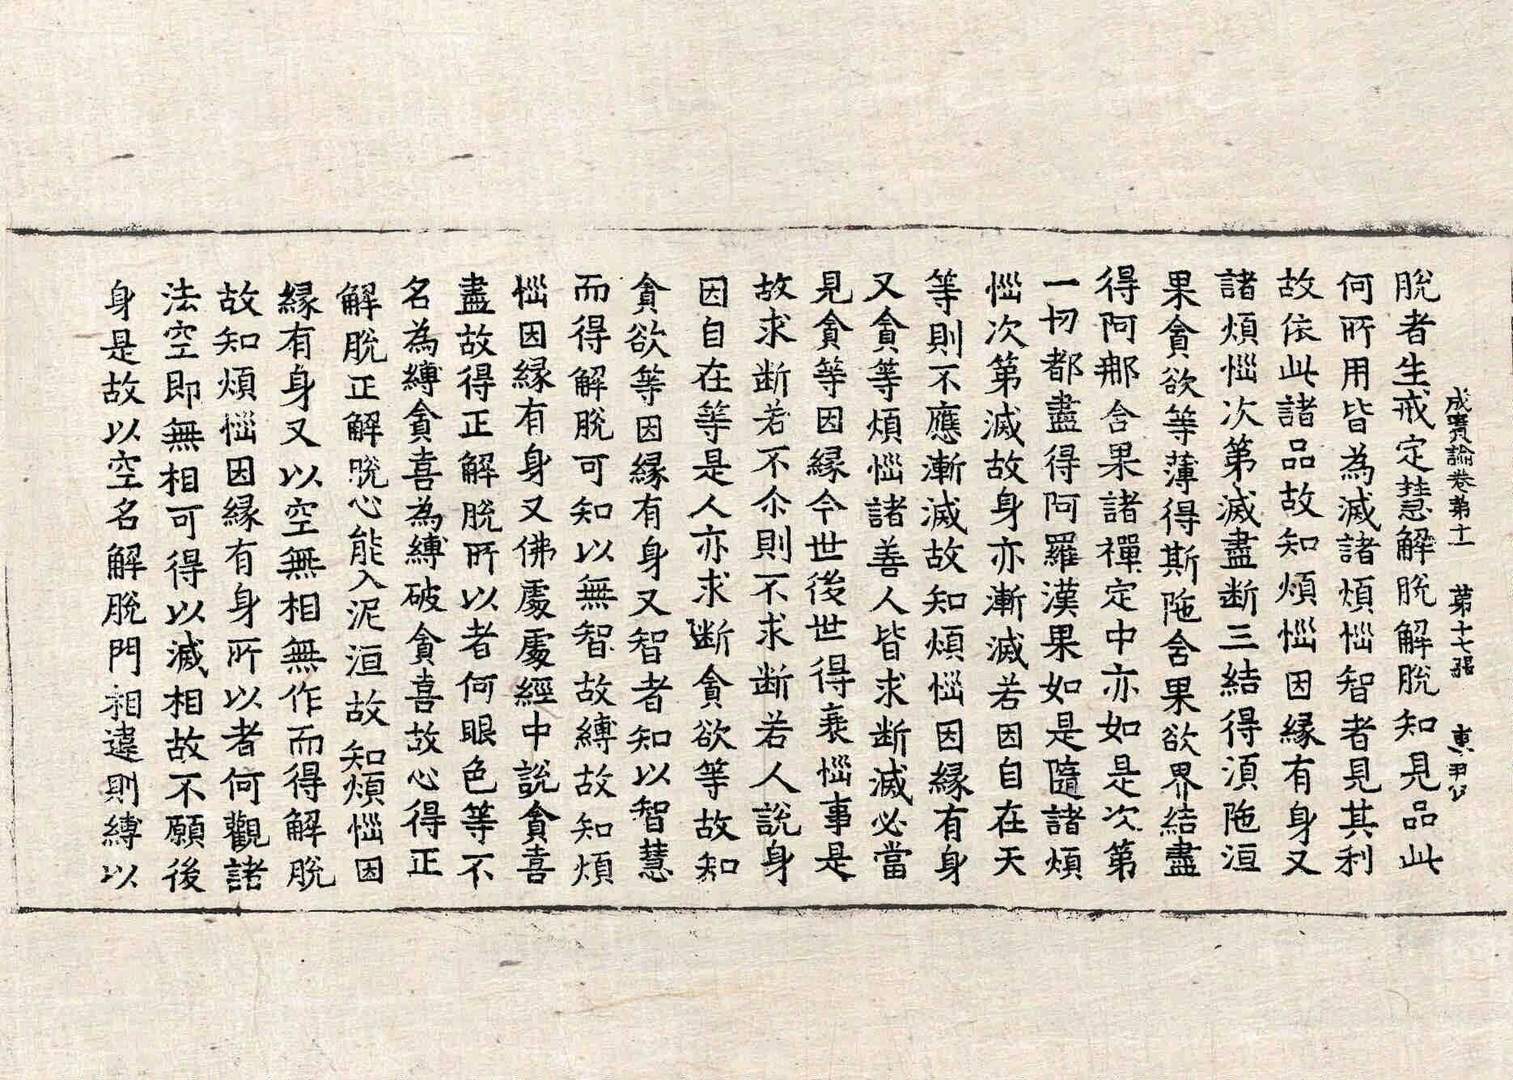 成實論卷第十一　第十七張　惠尹公
脫者生戒定慧解脫解脫知見品此
何所用皆為滅諸煩惱智者見其利
故依此諸品故知煩惱因緣有身又
諸煩惱次第滅盡斷三結得湏陁洹
果貪欲等薄得斯陁含果欲界結盡
得阿那含果諸禪定中亦如是次第
一切都盡得阿羅漢果如是隨諸煩
惱次第滅故身亦漸滅若因自在天
等則不應漸滅故知煩惱因緣有身
又貪等煩惱諸善人皆求斷滅必當
見貪等因緣今世後世得衰惱事是
故求斷若不尒則不求斷若人說身
因自在等是人亦求斷貪欲等故知
貪欲等因緣有身又智者知以智慧
而得解脫可知以無智故縛故知煩
惱因緣有身又佛處處經中說貪喜
盡故得正解脫所以者何眼色等不
名為縛貪喜為縛破貪喜故心得正
解脫正解脫心能入泥洹故知煩惱因
緣有身又以空無相無作而得解脫
故知煩惱因緣有身所以者何觀諸
法空即無相可得以滅相故不願後
身是故以空名解脫門相違則縛以